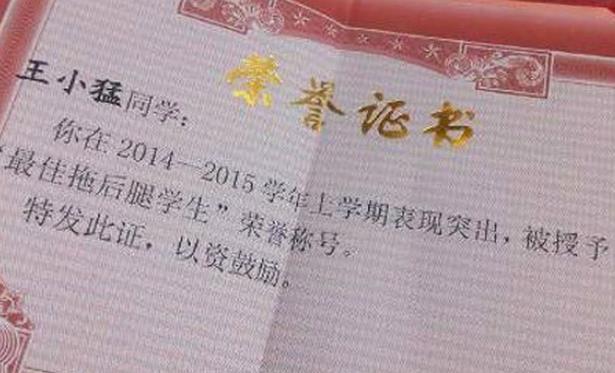 荣誉证书
王小猛同学:
你在2014—2015学年上学期表现突出,被授予
“最佳拖后腿学生”荣誉称号。
特发此证,以资鼓励。